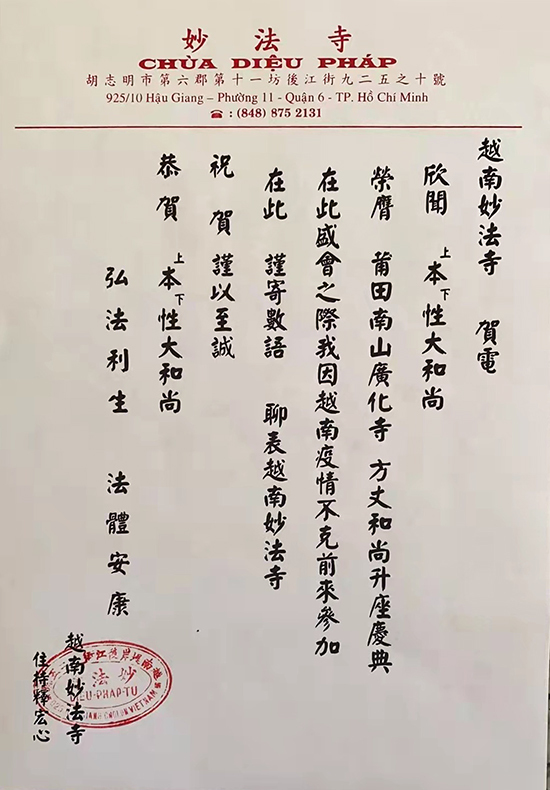 妙法寺
CHÙA DIỆU PHÁP
胡志明市第六郡第十一坊後江街九二五之十號
925/10 Hậu Giang – Phường 11 - Quận 6 - TP. Hồ Chí Minh
☎ : (848) 875 2131
越南妙法寺 賀電
欣聞 上本下性大和尚
榮膺 莆田南山廣化寺 方丈和尚升座慶典
在此盛會之際我因越南疫情不克前來參加
在此 謹寄數語 聊表越南妙法寺
祝賀 謹以至誠
恭賀 上本下性大和尚
弘法利生 法體安康
越南妙法寺
住持釋宏心
妙法
DIEU-PHAP-TU
VIETNAM